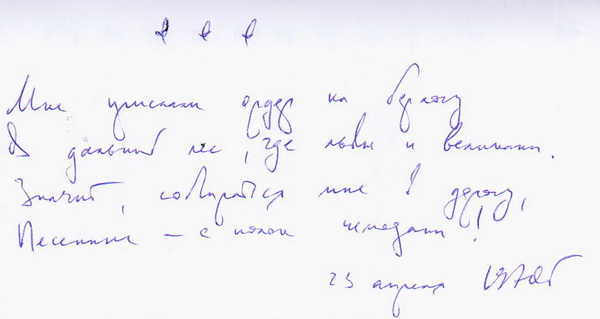 * * *
Мне прислали ордер на берлогу
В дальний лес, где львы и великаны.
Значит, собираться мне в дорогу,
— с полок чемоданы!
23 апреля